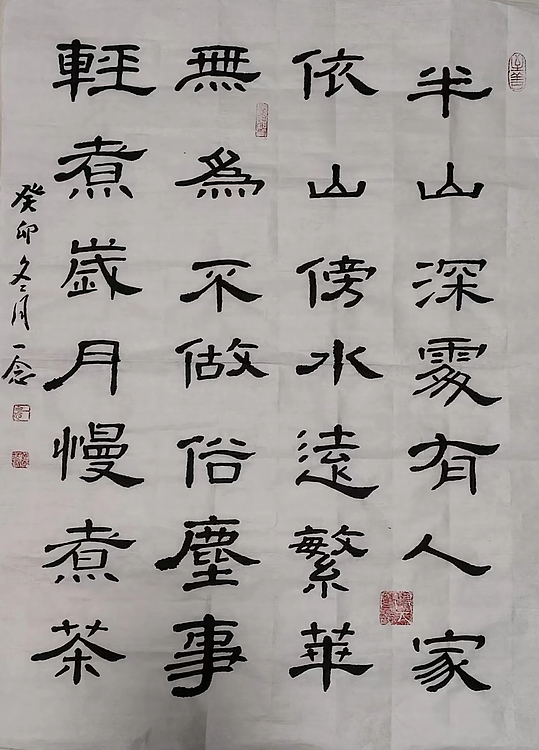 半山深處有人家
依山傍水遠繁華
無為不做俗塵事
輕煮歲月慢煮茶
癸卯冬月一念